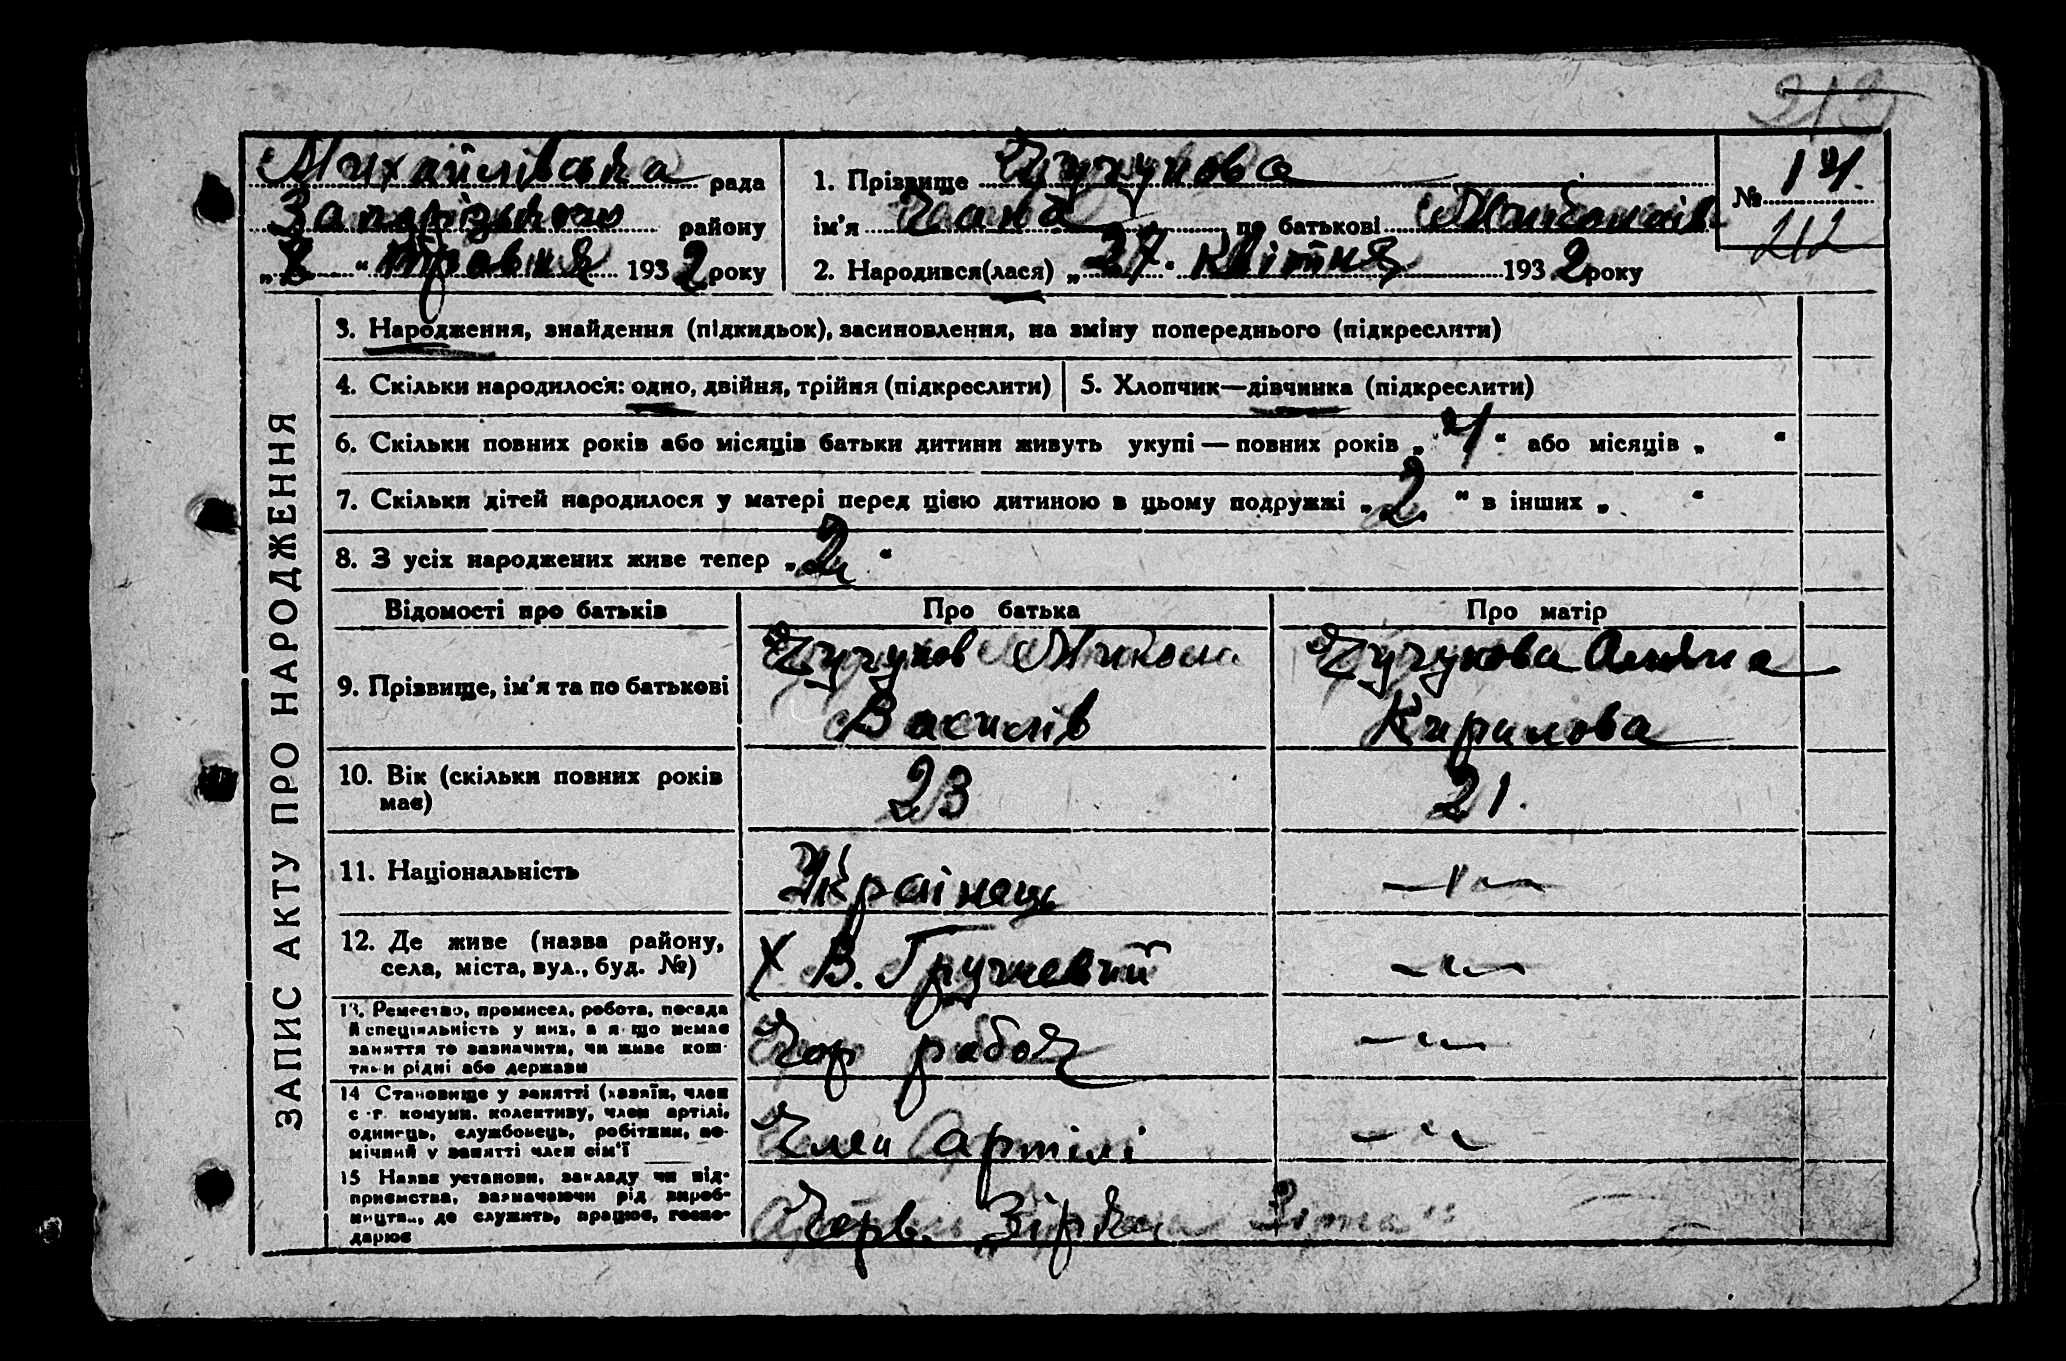 212
Михайлівська рада
Запорізького району
„ “ травня 1932 року
1. Прізвище Чугунова
ім’я по батькові
2. Народився(лася) „27“ квітня 1932 року
№ 14.
212
ЗАПИС АКТУ ПРО НАРОДЖЕННЯ
3. Народження, знайдення (підкидьок), засиновлення, на зміну попереднього (підкреслити)
4. Скільки народилося: одно, двійня, трійня (підкреслити)
5. Хлопчик—дівчинка (підкреслити)
6. Скільки повних років або місяців батьки дитини живуть укупі — повних років „4“ або місяців „ “
7. Скільки дітей народилося у матері перед цією дитиною в цьому подружжі „2“ в інших „ “
8. З усіх народжених живе тепер „2“
Відомості про батьків Про батька Про матір
9. Прізвище, ім’я та по батькові
Чугунов Микола
Василів
Чугунова
Кирилова
10. Вік (скільки повних років
має)
23
21.
11. Національність
Українець
—〃—
12. Де живе (назва району,
села, міста, вул., буд. №)
Х В.
—〃—
13. Ремество, промисел, робота, посада
й спеціяльність у них, а якщо немає
заняття то зазначити, чи живе кош-
тами рідні або держави
Чор рабоч
—〃—
14 Становище у занятті (хазяїн, член
с.-г. комуни, колективу, член артілі,
одинець, службовець, робітник, по-
мічний у занятті член сім’ї
Член Артілі
—〃—
15 Назва установи, закладу чи під-
приємства, зазначаючи рід вироб-
ництва, де служить, працює, госпо-
дарює
Черв. Зірка